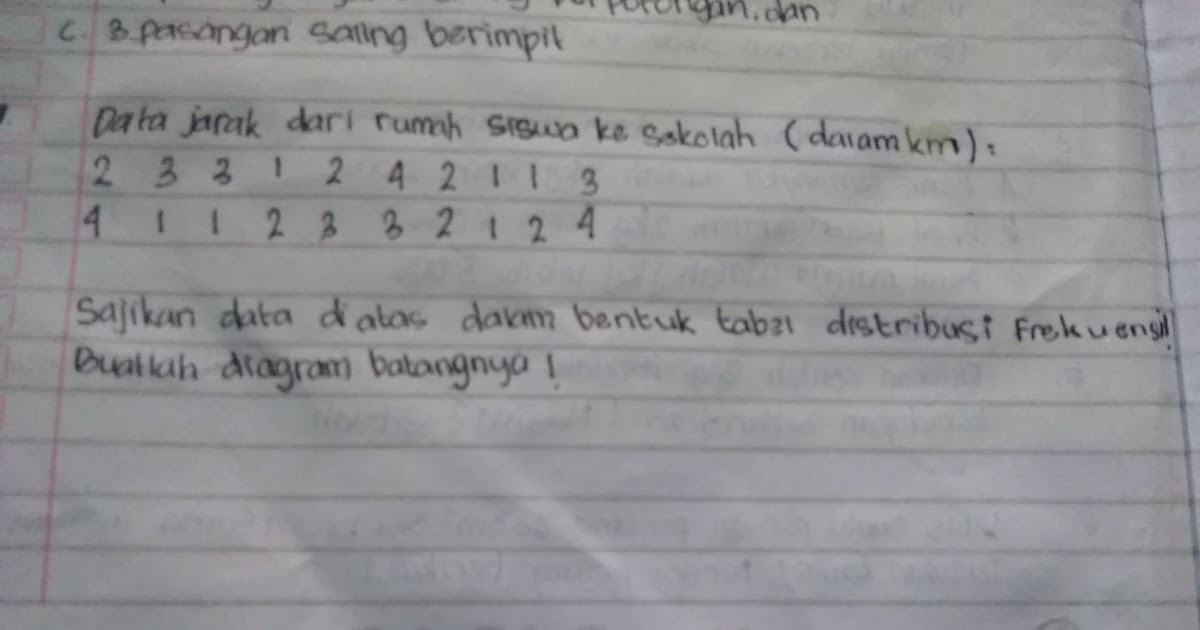 dan
c. 3 pasangan saling berimpit
Data jarak dari rumah siswa ke sekolah (dalam km):
2 3 3 1 2 4 2 1 1 3
4 1 1 2 3 3 2 1 2 4
Sajikan data diatas dalam bentuk tabel distribusi Frekuensi!
Buatlah diagram batangnya!